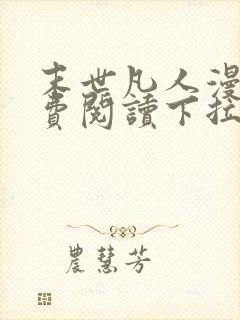 末世凡人漫
費閱讀下拉
農慧芳